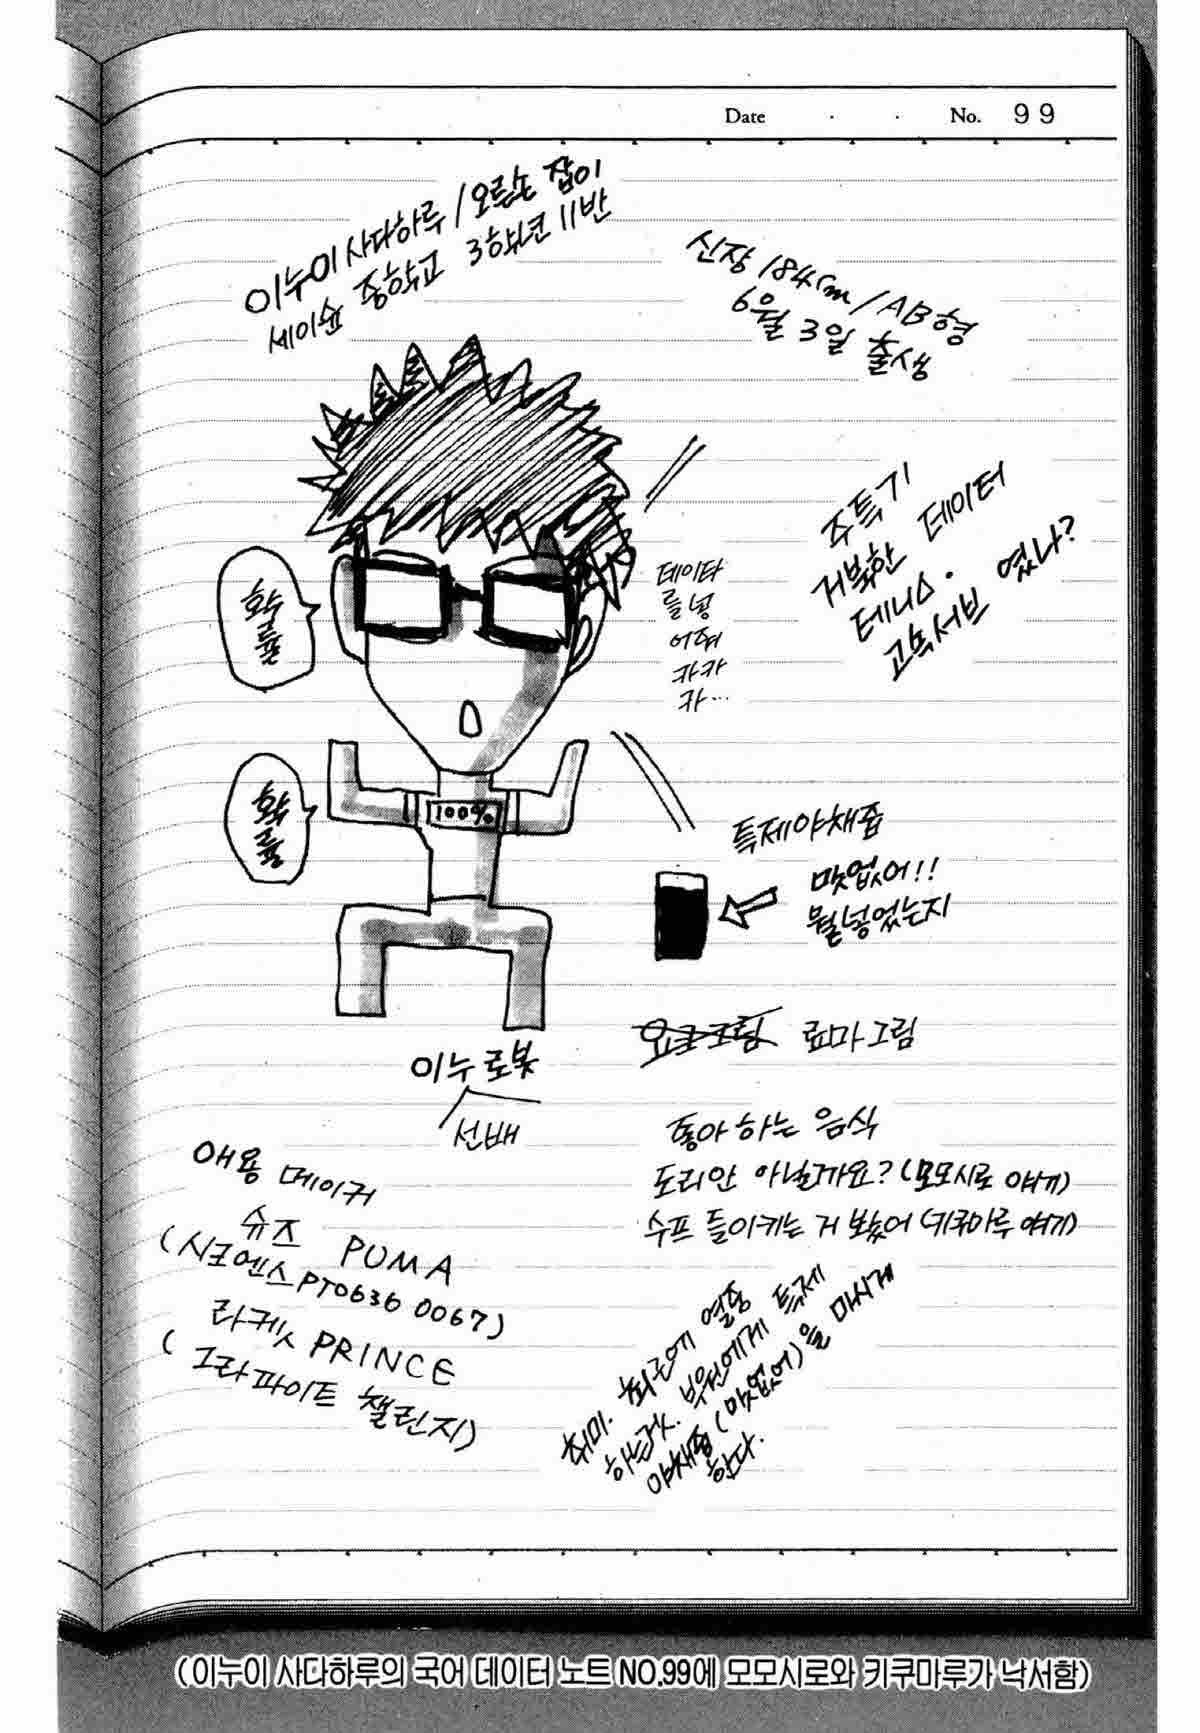 Date . . No. 99
이누이 사다하루 / 오른손 잡이
세이슌 중학교 3학년 11반
신장 184cm / AB형
6월 3일 출생
주특기
거북한 데이터
테니스.
고속서브 였나?
데이타
를 넣
어줘
카카
카...
확률
확률
100%
특제야채즙
맛없어!!
뭘넣었는지
료마그림
이누 로봇
선배
애용 메이커
슈즈 PUMA
(시코엔스PT0636 0067)
라케ㅅ PRINCE
(그라파이트 챌린지)
좋아하는 음식
도리안 아닐까요? (모모시로 얘기)
수프 들이키는 거 봤어 (키쿠마루 얘기)
취미. 최근에 열중
하는것. 부원에게 특제
야채즙(맛없어)을 마시게
한다.
(이누이 사다하루의 국어 데이터 노트 NO.99에 모모시로와 키쿠마루가 낙서함)